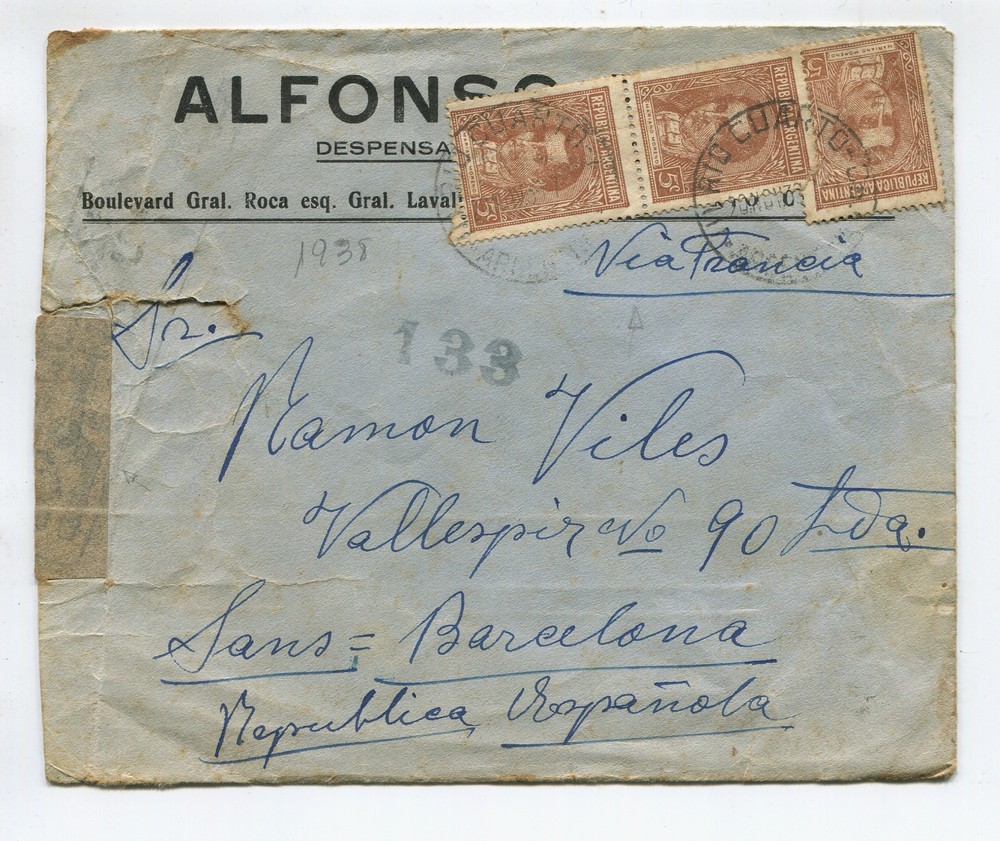 ALFONSO
DESPENSA
Boulevard Gral. Roca esq. Gral. Lavall
REPUBLICA ARGENTINA
5c
REPUBLICA ARGENTINA
5c
MARIANO MORENO
5c
REPUBLICA ARGENTINA
RIO CUARTO
RIO CUARTO
1938
Via Francia
Sr.
133
Ramon Viles
Vallespir No 90 Lda.
Sans = Barcelona
Republica Española